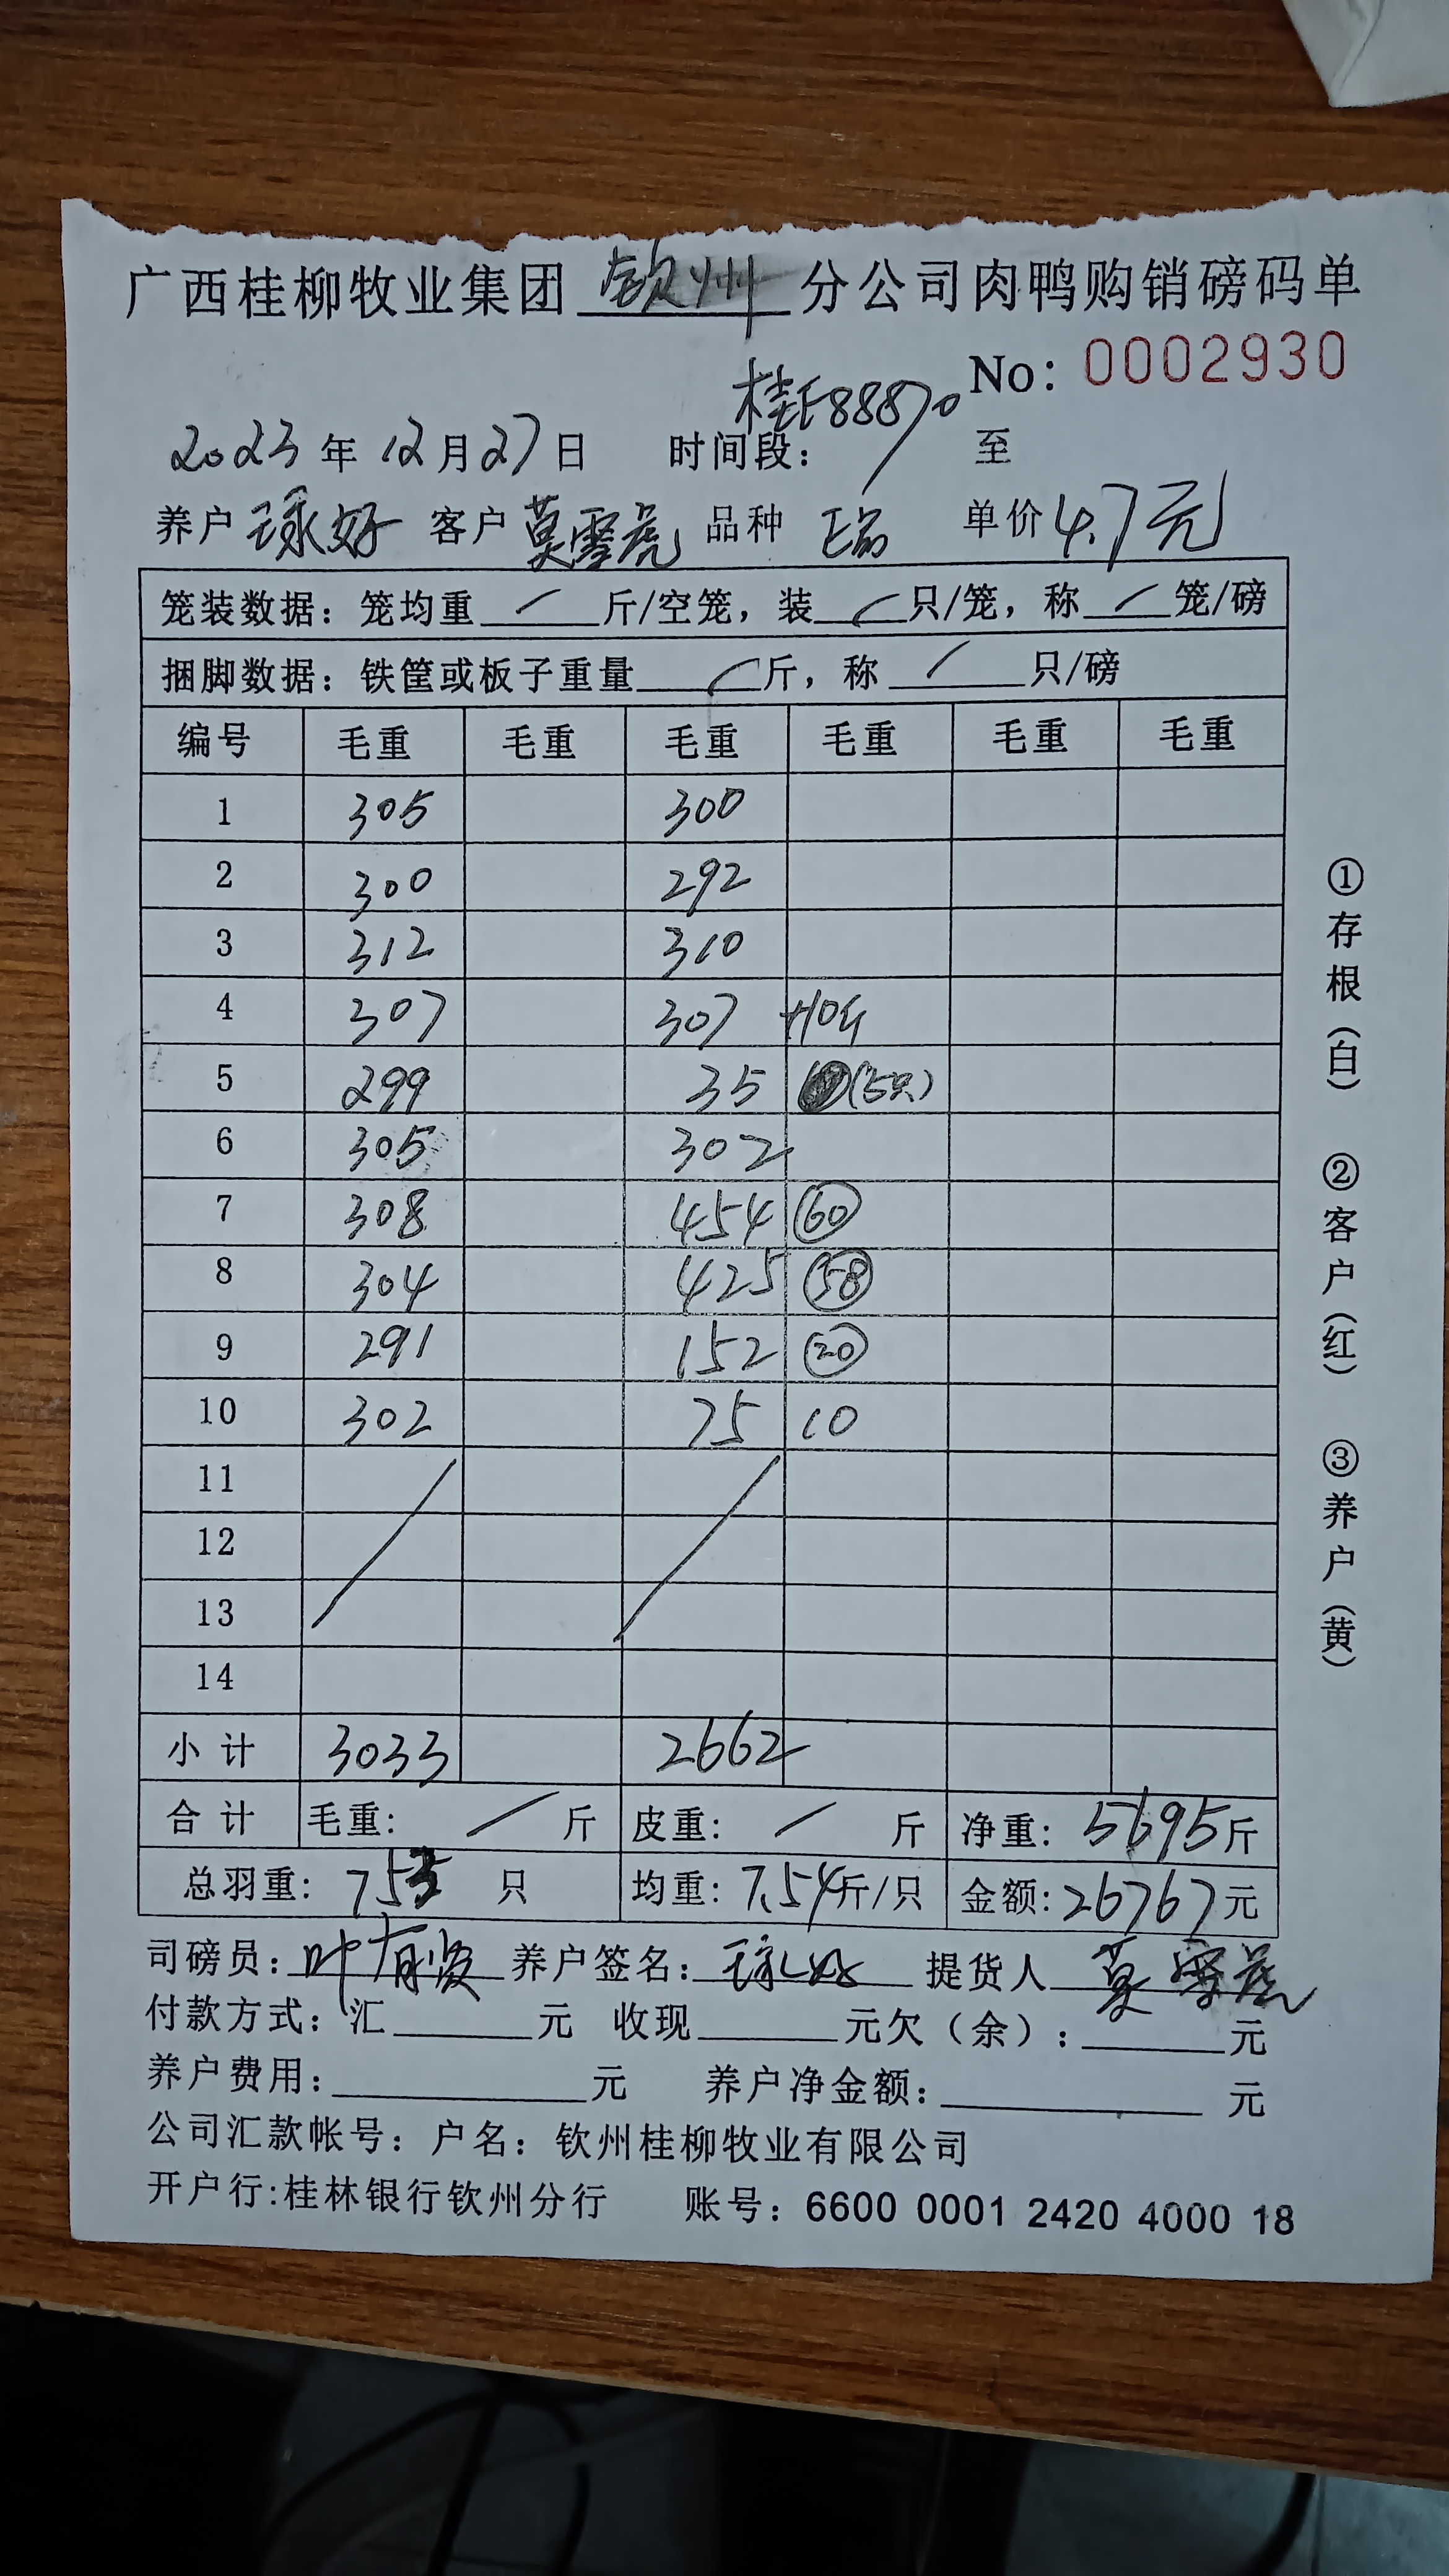 广西桂柳牧业集团 钦州 分公司肉鸭购销磅码单
No: 0002930
桂E88870
2023 年 12 月 27 日 时间段: 至
养户 球好 客户 莫雪虎 品种 单价 4.7元
笼装数据: 笼均重 / 斤/空笼, 装 / 只/笼, 称 / 笼/磅
捆脚数据: 铁筐或板子重量 / 斤, 称 / 只/磅
编号 毛重 毛重 毛重 毛重 毛重 毛重
1 305 300
2 300 292
3 312 310
4 307 307 +10斤
5 299 35 (5只)
6 305 302
7 308 454 60
8 304 425 58
9 291 152 20
10 302 75 10
11
12
13
14
小计 3033 2662
合计 毛重: / 斤 皮重: / 斤 净重: 5695 斤
总羽重: 753 只 均重: 7.54 斤/只 金额: 26767 元
司磅员: 叶有贤 养户签名: 球好 提货人 莫雪虎
付款方式: 汇 元 收现 元欠(余): 元
养户费用: 元 养户净金额: 元
公司汇款帐号: 户名: 钦州桂柳牧业有限公司
开户行:桂林银行钦州分行 账号: 6600 0001 2420 4000 18
①存根(白) ②客户(红) ③养户(黄)